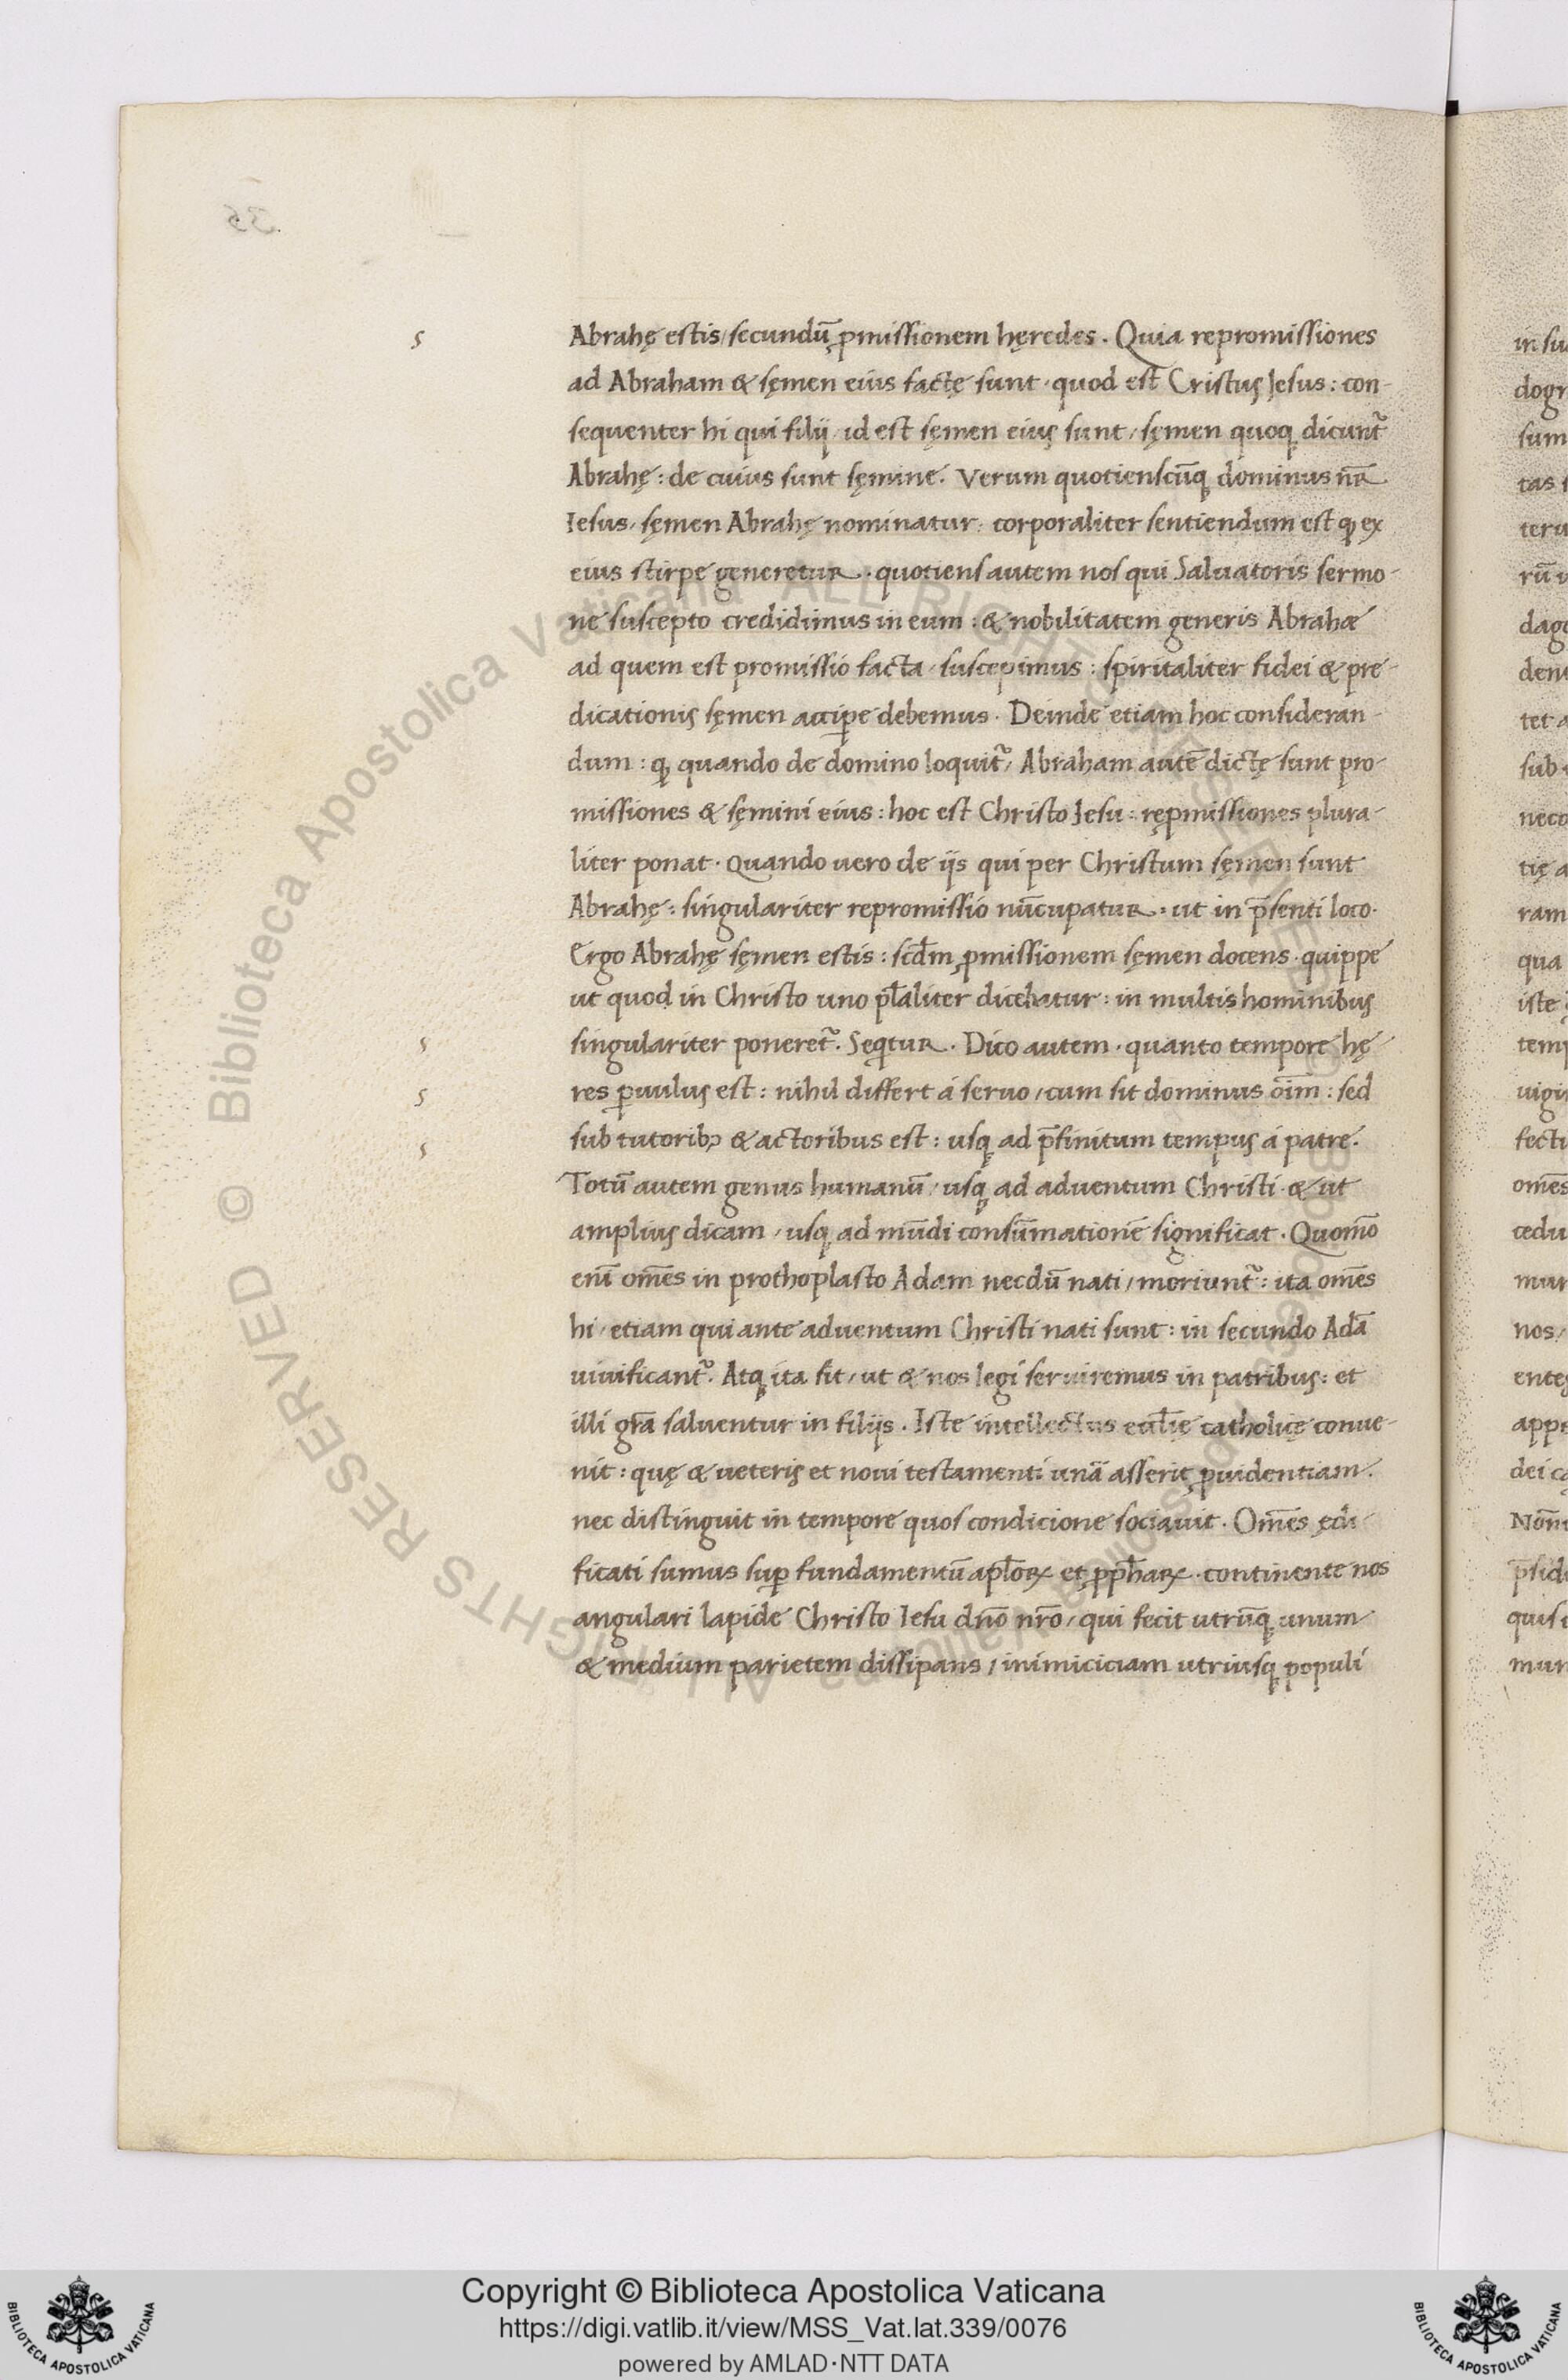 Abrahę estis / secundū ꝓmissionem hęredes. Quia repromissiones
ad Abraham & sęmen eius factę sunt · quod est Cristus Jesus : con-
sequenter hi qui filij / id est sęmen eius sunt / sęmen quoqꝫ dicunt᷑
Abrahę : de cuius sunt sęmine. Verum quotienscūqꝫ dominus nr̄
Iesus / sęmen Abrahę nominatur : corporaliter sentiendum est ꝙ ex
eius stirpe generetur · quotiens autem nos qui Saluatoris sermo-
ne suscepto credidimus in eum : & nobilitatem generis Abrahæ
ad quem est promissio facta / suscepimus : spiritaliter fidei & pre-
dicationis sęmen acciꝑe debemus. Deinde etiam hoc consideran-
dum : ꝙ quando de domino loquit᷑ / Abraham autē dictę sunt pro-
missiones & sęmini eius : hoc est Christo Jesu : reꝓmissiones plura-
liter ponat. Quando uero de ijs qui per Christum sęmen sunt
Abrahę : singulariter repromissio nūcupatur : ut in p̄senti loco.
Ergo Abrahę sęmen estis : scd̄m ꝓmissionem sęmen docens · quippe
ut quod in Christo uno pl̄aliter dicebatur : in multis hominibus
singulariter poneret᷑. Seqtur. Dico autem · quanto tempore hę
res ꝑuulus est : nihil differt á seruo / cum sit dominus oīm : sed
sub tutoribꝫ & actoribus est : usqꝫ ad p̄finitum tempus á patre.
Totū autem genus humanū / usqꝫ ad aduentum Christi · & ut
amplius dicam / usqꝫ ad mūdi consūmationē significat. Quomō
enī om̄es in prothoplasto Adam necdū nati / moriunt᷑ : ita om̄es
hi / etiam qui ante aduentum Christi nati sunt : in secundo Adā
uiuificant᷑. Atqꝫ ita fit / ut & nos legi seruiremus in patribus : et
illi gr̄a saluentur in filijs. Iste intellectus eccl̄ię catholicę conue-
nit : quę & ueteris et noui testamenti unā asserit ꝓuidentiam.
nec distinguit in tempore quos condicione sociauit. Om̄es ędi-
ficati sumus suꝑ fundamentū apl̄oꝝ et ꝓph̄aꝝ · continente nos
angulari lapide Christo Iesu dn̄o nr̄o / qui fecit utrūqꝫ unum
& medium parietem dissipans / inimiciciam utriusqꝫ populi
s
s
s
s
35
in su
dogr
sum
tas
teru
rū
dago
den
tet a
sub
neco
tię a
ram
qua
iste
tem
uigi
fectu
om̄es
cedu
mur
nos /
entes
appe
dei
Non̄
p̄sid
quis
mun
© Biblioteca Apostolica Vaticana ALL RIGHTS RESERVED
© Biblioteca Apostolica Vaticana ALL RIGHTS RESERVED
Copyright © Biblioteca Apostolica Vaticana
https://digi.vatlib.it/view/MSS_Vat.lat.339/0076
powered by AMLAD·NTT DATA
BIBLIOTECA APOSTOLICA VATICANA
BIBLIOTECA APOSTOLICA VATICANA